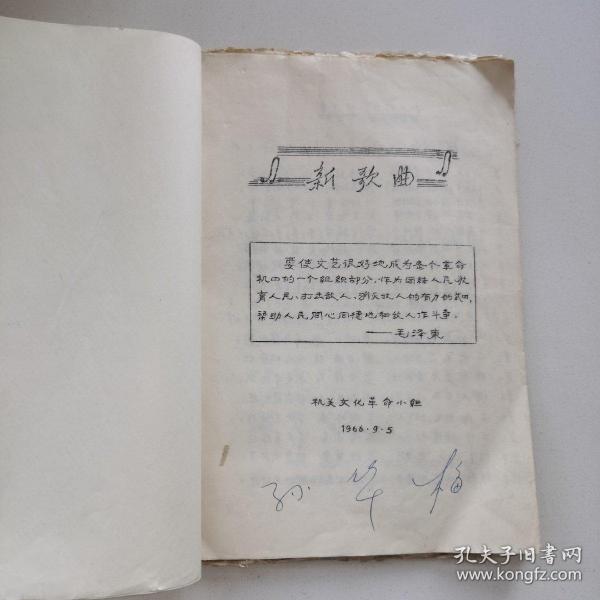 新歌曲
要使文艺很好地成为整个革命
机口的一个组织部分，作为团结人民、教
育人民、打击敌人、消灭敌人的有力的武口，
帮助人民同心同德地和敌人作斗争。
——毛泽东
机关文化革命小组
1966.9.5
孙华梅
孔夫子旧书网
www.kongfz.com